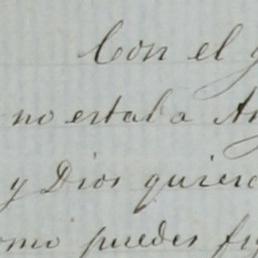 Con el
no estaba
y Dios quiera
omo puedes